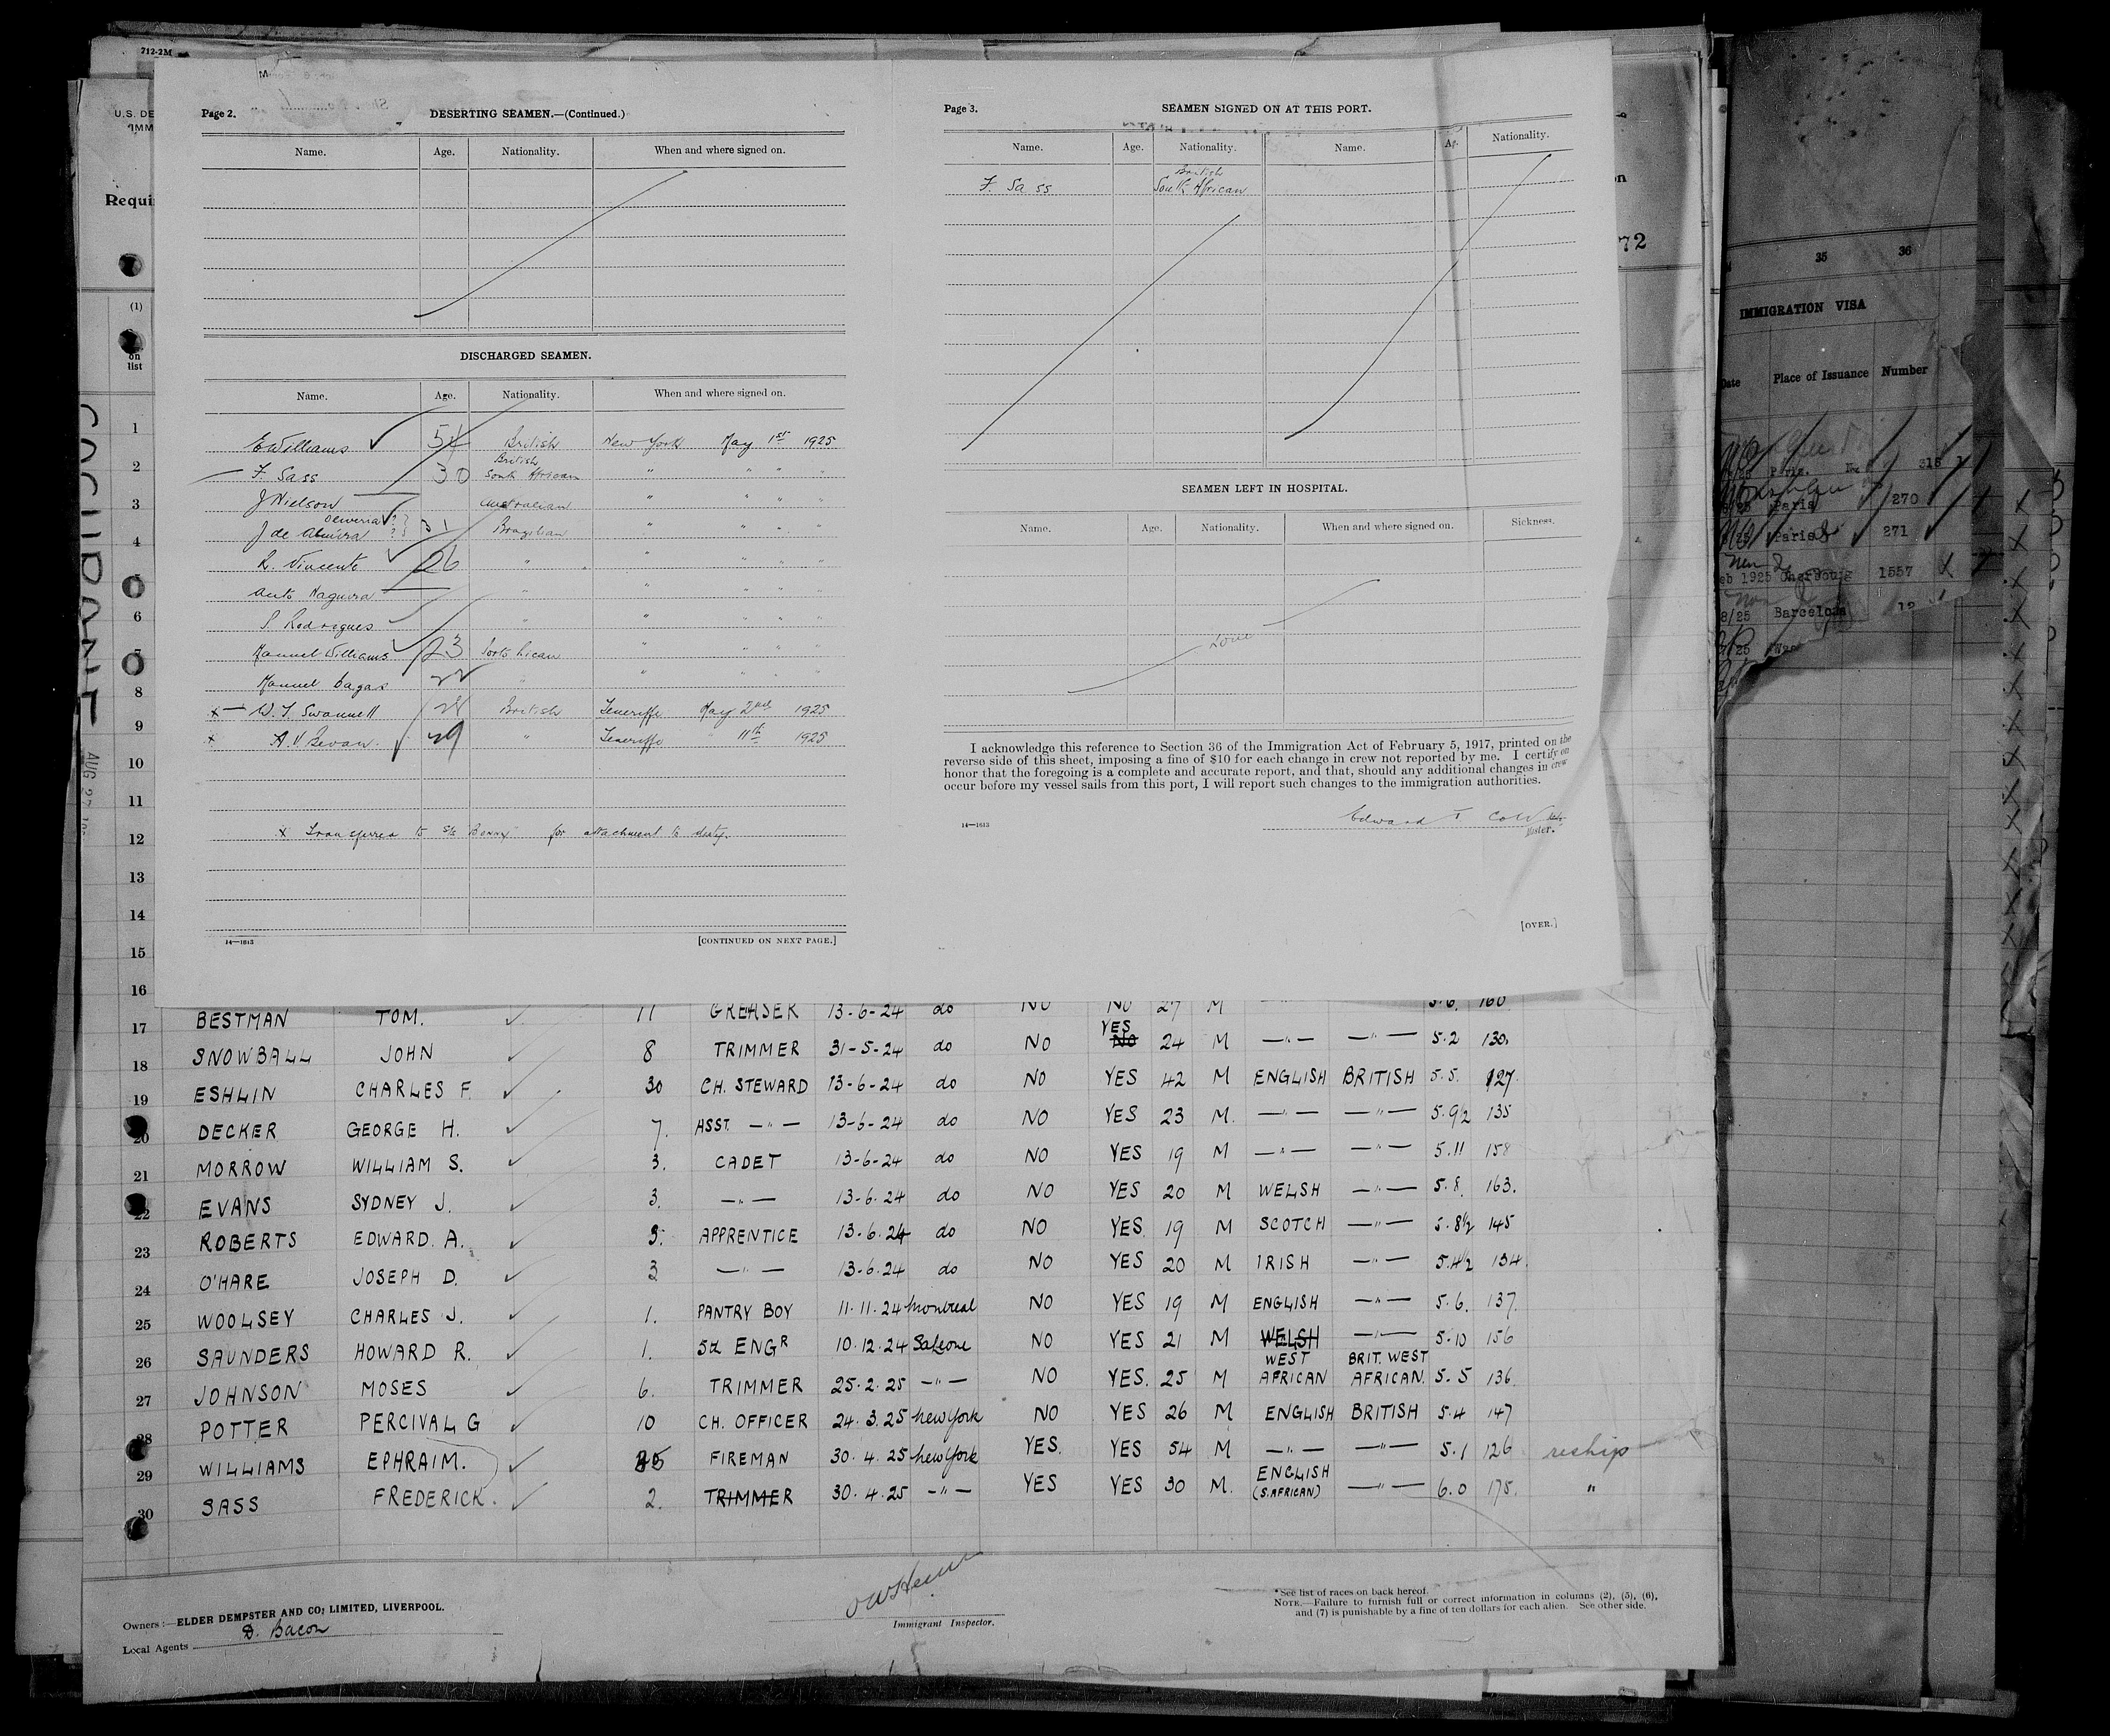 712-2M
U.S. DE
IMM
Requi
(1)
on
list
Page 2.
DESERTING SEAMEN.—(Continued.)
Name. Age. Nationality. When and where signed on.
DISCHARGED SEAMEN.
Name. Age. Nationality. When and where signed on.
E Williams 54 British New York May 1st 1925
F. Sass 30 British South African " " " "
J Nielson Australian " " " "
Oliveria ?
J de Almira ? 31 Brazilian " " " "
R. Vincente 26 " " " " "
Anto Naguira " " " " "
P. Rodregues " " " " "
Manuel Williams 23 Porto Rican " " " "
Manuel Dagas " " " " "
x — W. T. Swannell British Teneriffe May 2nd 1925
x A. V. Bevan. 29 " Teneriffe 11th 1925
x Transferred to S/S for attachment to duty.
14—1613
[CONTINUED ON NEXT PAGE.]
Page 3.
SEAMEN SIGNED ON AT THIS PORT.
Name. Age. Nationality. Name. Ag. Nationality.
F. Sass British South African
SEAMEN LEFT IN HOSPITAL.
Name. Age. Nationality. When and where signed on. Sickness.
I acknowledge this reference to Section 36 of the Immigration Act of February 5, 1917, printed on the
reverse side of this sheet, imposing a fine of $10 for each change in crew not reported by me. I certify on
honor that the foregoing is a complete and accurate report, and that, should any additional changes in crew
occur before my vessel sails from this port, I will report such changes to the immigration authorities.
14—1613
Edward T
Master.
[OVER.]
1
2
3
4
5
6
7
8
9
10
11
12
13
14
15
16
AUG 27
72
35 36
IMMIGRATION VISA
Date Place of Issuance Number
Paris. 315
Paris 270
Paris 271
eb 1925 Cherbourg 1557
8/25 Barcelona
17 BESTMAN TOM. 11 GREASER 13-6-24 do NO NO 27 M 5.6. 160
18 SNOWBALL JOHN 8 TRIMMER 31-5-24 do NO YES NO 24 M —"— —"— 5.2 130.
19 ESHLIN CHARLES F. 30 CH. STEWARD 13-6-24 do NO YES 42 M ENGLISH BRITISH 5.5. 127.
20 DECKER GEORGE H. 7. ASST. —"— 13-6-24 do NO YES 23 M. —"— —"— 5.9½ 135
21 MORROW WILLIAM S. 3. CADET 13-6-24 do NO YES 19 M —"— —"— 5.11 158
22 EVANS SYDNEY J. 3. —"— 13-6.24 do NO YES 20 M WELSH —"— 5.8. 163.
23 ROBERTS EDWARD. A. APPRENTICE 13.6.24 do NO YES. 19 M SCOTCH —"— 5.8½ 145
24 O'HARE JOSEPH D. 3 —"— 13-6.24 do NO YES 20 M IRISH —"— 5.4½ 134.
25 WOOLSEY CHARLES J. 1. PANTRY BOY 11.11.24 Montreal NO YES 19 M ENGLISH —"— 5.6. 137.
26 SAUNDERS HOWARD R. 1. 5th ENGR 10.12.24 Saleone NO YES 21 M WELSH —"— 5.10 156
27 JOHNSON MOSES 6. TRIMMER 25.2.25 —"— NO YES. 25 M WEST AFRICAN BRIT. WEST AFRICAN. 5.5 136.
28 POTTER PERCIVAL G 10 CH. OFFICER 24.3.25 New York NO YES 26 M ENGLISH BRITISH 5.4 147
29 WILLIAMS EPHRAIM. FIREMAN 30.4.25 New York YES. YES 54 M —"— —"— 5.1 126 reship
30 SASS FREDERICK. 2. TRIMMER 30.4.25 —"— YES YES 30 M. ENGLISH (S.AFRICAN) —"— 6.0 175. "
Owners:—ELDER DEMPSTER AND CO; LIMITED, LIVERPOOL.
Local Agents D. Bacon
Immigrant Inspector.
*See list of races on back hereof.
NOTE.—Failure to furnish full or correct information in columns (2), (5), (6),
and (7) is punishable by a fine of ten dollars for each alien. See other side.